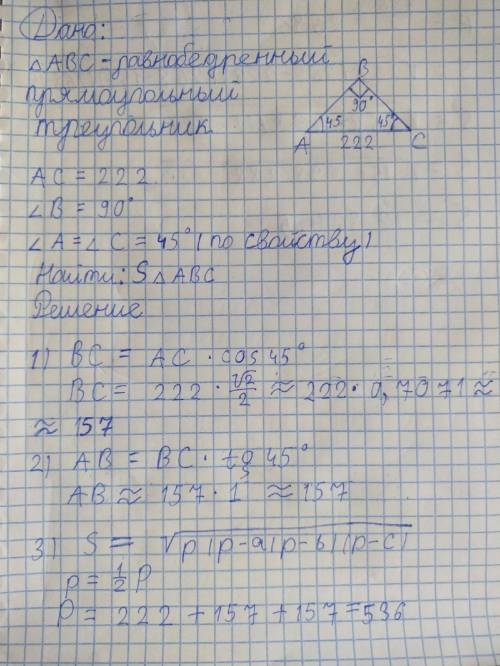 Дано:
△ABC - равнобедренный
прямоугольный
треугольник
B
90°
45
45°
A
222
C
AC = 222
∠B = 90°
∠A = ∠C = 45° (по свойству)
Найти: S △ABC
Решение
1) BC = AC · cos 45°
BC = 222 · √2/2 ≈ 222 · 0,7071 ≈
≈ 157
2) AB = BC · tg 45°
AB ≈ 157 · 1 ≈ 157
3) S = √p(p-a)(p-b)(p-c)
p = 1/2 P
P = 222 + 157 + 157 = 536